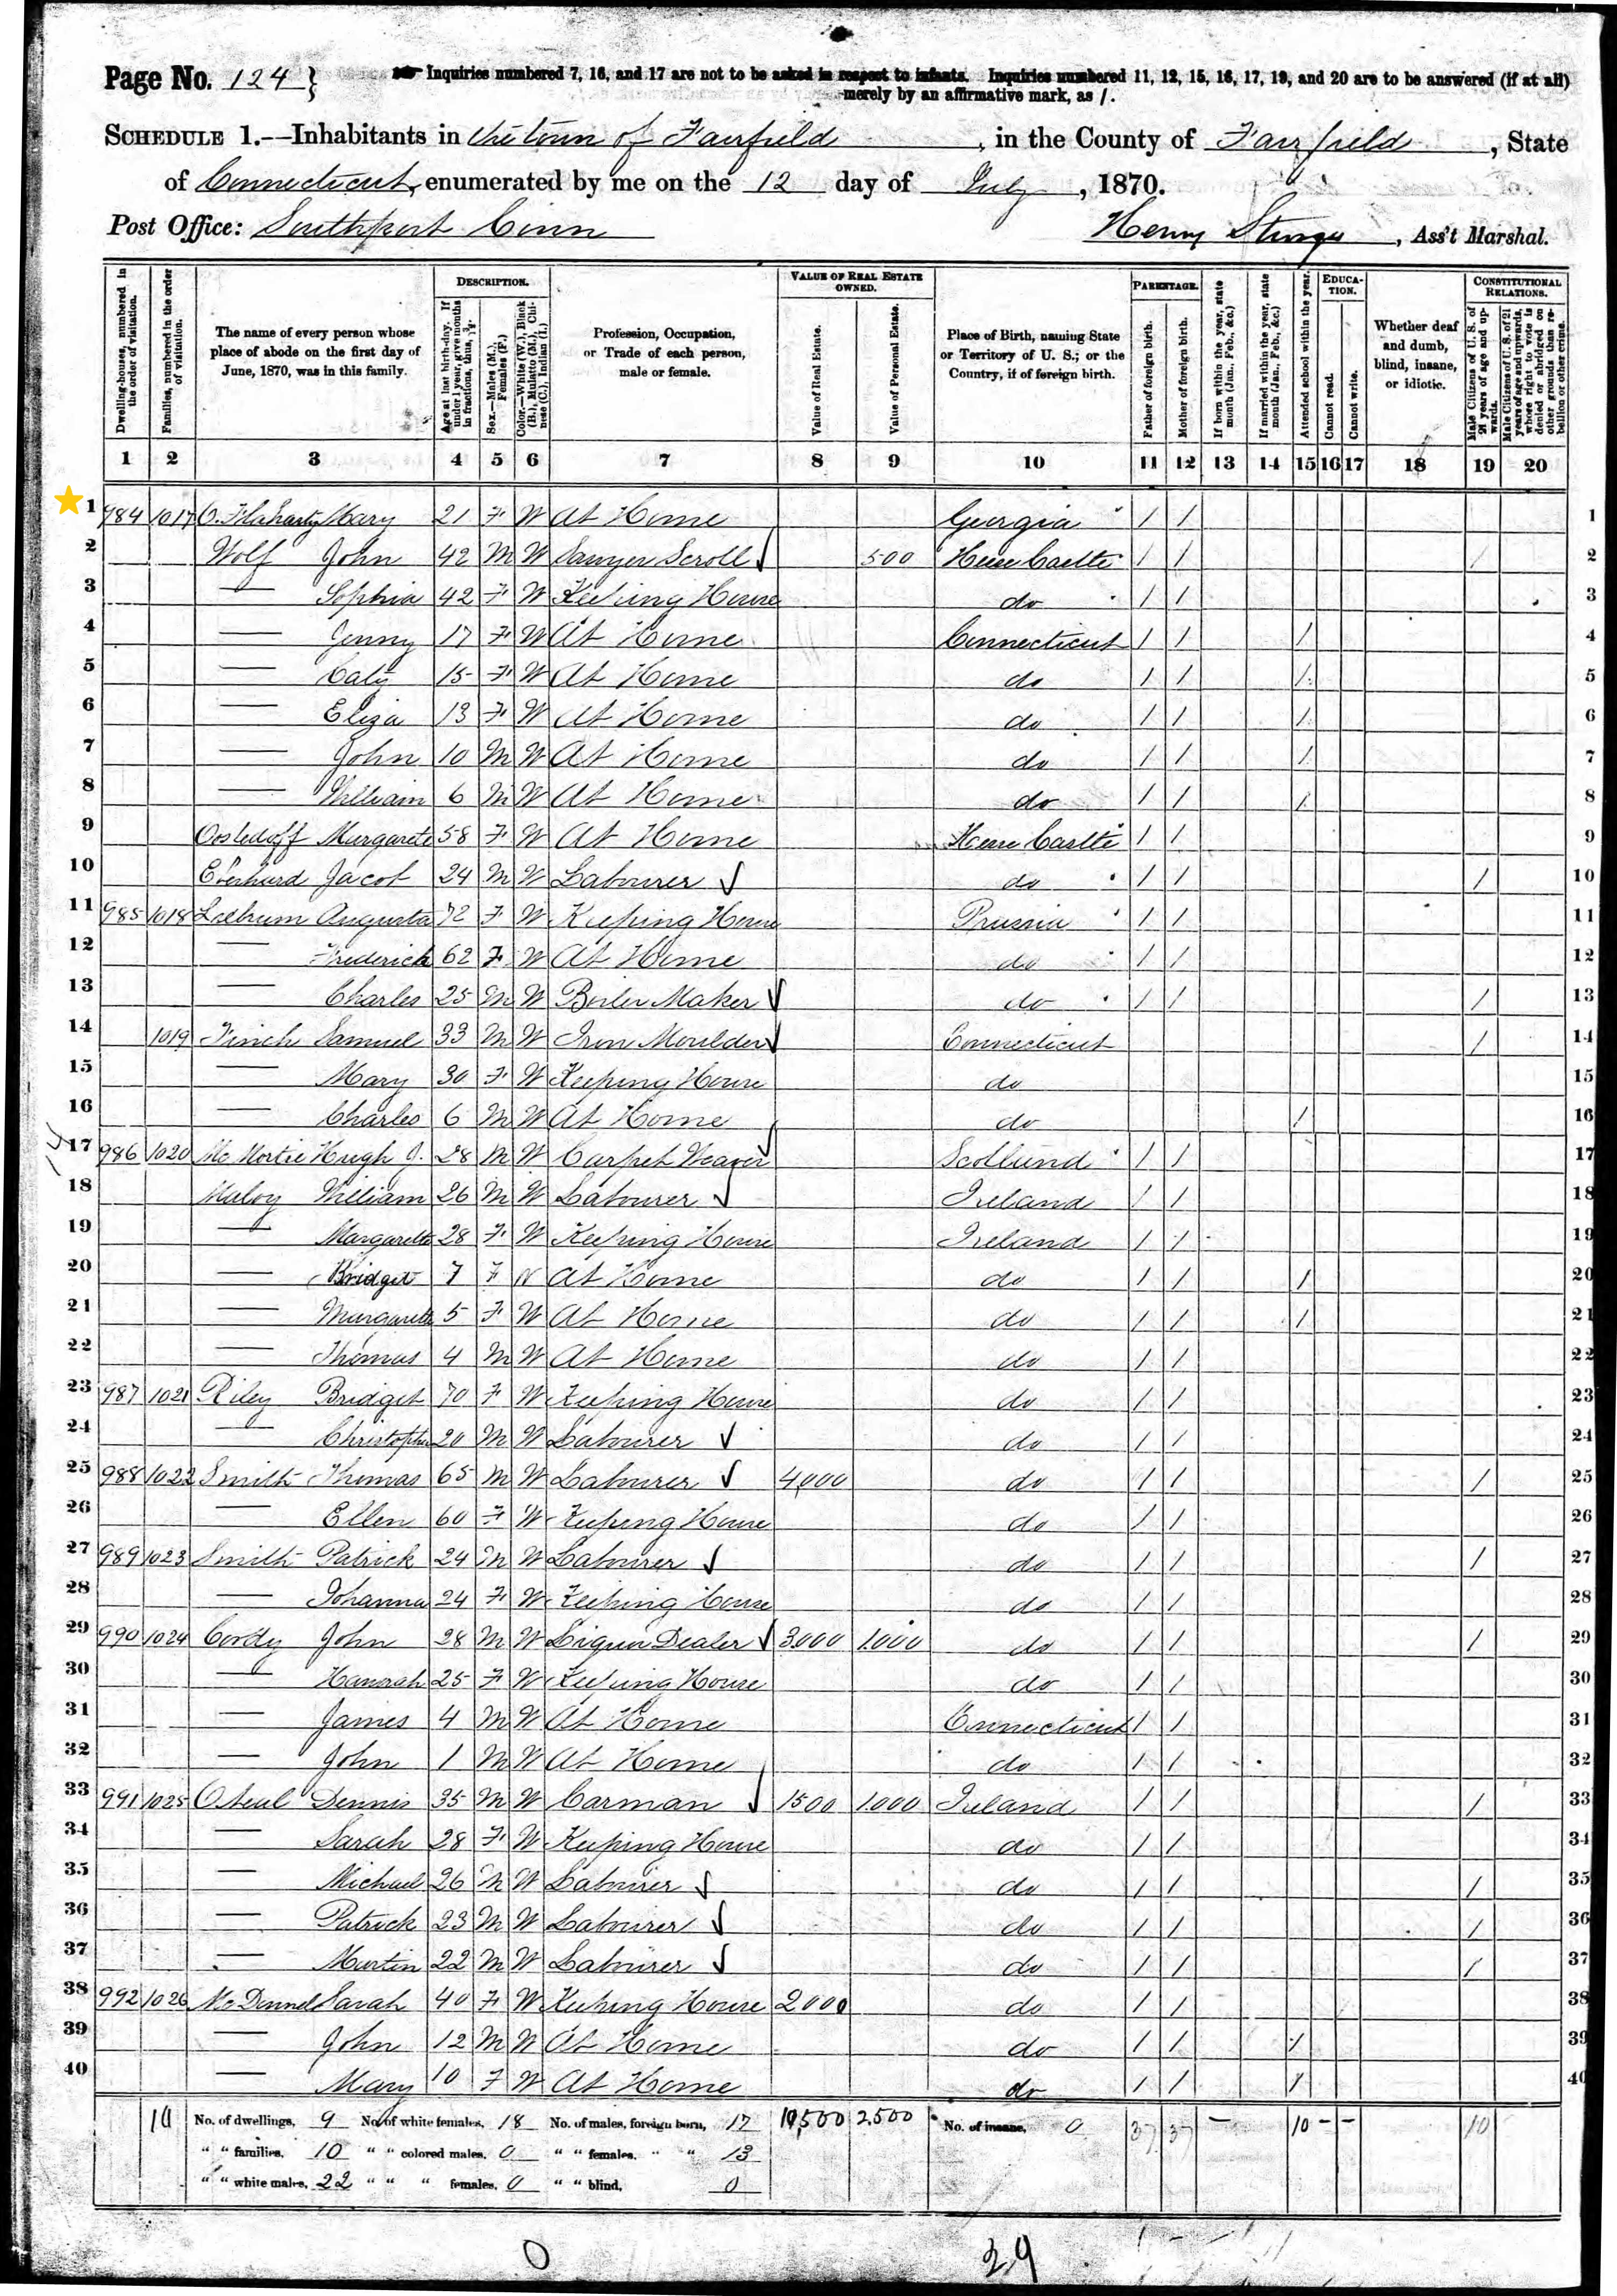 Page No. 124 } Inquiries numbered 7, 16, and 17 are not to be asked in respect to infants. Inquiries numbered 11, 12, 15, 16, 17, 19, and 20 are to be answered (if at all)
merely by an affirmative mark, as /.
SCHEDULE 1.—Inhabitants in the town of Fairfield, in the County of Fairfield, State
of Connecticut, enumerated by me on the 12 day of July, 1870.
Post Office: Southport Conn Henry Sturges, Ass't Marshal.
Dwelling-houses, numbered in the order of visitation.
Families, numbered in the order of visitation.
The name of every person whose place of abode on the first day of June, 1870, was in this family.
DESCRIPTION.
Age at last birth-day. If under 1 year, give months in fractions, thus, 3/12.
Sex.—Males (M.), Females (F.)
Color.—White (W.), Black (B.), Mulatto (M.), Chinese (C.), Indian (I.)
Profession, Occupation, or Trade of each person, male or female.
VALUE OF REAL ESTATE OWNED.
Value of Real Estate.
Value of Personal Estate.
Place of Birth, naming State or Territory of U. S.; or the Country, if of foreign birth.
PARENTAGE.
Father of foreign birth.
Mother of foreign birth.
If born within the year, state month (Jan., Feb., &c.)
If married within the year, state month (Jan., Feb., &c.)
Attended school within the year.
EDUCATION.
Cannot read.
Cannot write.
Whether deaf and dumb, blind, insane, or idiotic.
CONSTITUTIONAL RELATIONS.
Male Citizens of U. S. of 21 years of age and upwards.
Male Citizens of U. S. of 21 years of age and upwards, whose right to vote is denied or abridged on other grounds than rebellion or other crime.
1 2 3 4 5 6 7 8 9 10 11 12 13 14 15 16 17 18 19 20
1 984 1017 O.Flaharty Mary 21 F W At Home Georgia / / 1
2 Wolf John 42 M W Sawyer Scroll 500 / / / 2
3 — Sophia 42 F W Keeping House do / / 3
4 — Jenny 17 F W At Home Connecticut / / / 4
5 — Caty 15 F W At Home do / / / 5
6 — Eliza 13 F W At Home do / / / 6
7 — John 10 M W At Home do / / / 7
8 — William 6 M W At Home do / / / 8
9 Margarete 58 F W At Home / / 9
10 Eberhard Jacob 24 M W Labourer do / / / 10
11 985 1018 Augusta 72 F W Keeping House Prussia / / 11
12 — Frederick 62 F W At Home do / / 12
13 — Charles 25 M W Boiler Maker do / / / 13
14 1019 Finch Samuel 33 M W Iron Moulder Connecticut / 14
15 — Mary 30 F W Keeping House do 15
16 — Charles 6 M W At Home do / 16
17 986 1020 Hugh J. 28 M W Carpet Weaver Scotland / / 17
18 Maloy William 26 M W Labourer Ireland / / 18
19 — Margarette 28 F W Keeping House Ireland / / 19
20 — Bridget 7 F W At Home do / / / 20
21 — Margarete 5 F W At Home do / / / 21
22 — Thomas 4 M W At Home do / / 22
23 987 1021 Riley Bridget 70 F W Keeping House do / / 23
24 — Christopher 20 M W Labourer do / / 24
25 988 1022 Smith Thomas 65 M W Labourer 4,000 do / / / 25
26 — Ellen 60 F W Keeping House do / / 26
27 989 1023 Smith Patrick 24 M W Labourer do / / / 27
28 — Johanna 24 F W Keeping House do / / 28
29 990 1024 John 28 M W Liquor Dealer 3,000 1,000 do / / / 29
30 — Hannah 25 F W Keeping House do / / 30
31 — James 4 M W At Home Connecticut / / 31
32 — John 1 M W At Home do / / 32
33 991 1025 O Neal Dennis 35 M W Carman 1500 1,000 Ireland / / / 33
34 — Sarah 28 F W Keeping House do / / 34
35 — Michael 26 M W Labourer do / / / 35
36 — Patrick 23 M W Labourer do / / / 36
37 — Martin 22 M W Labourer do / / / 37
38 992 1026 Mc Donnel Sarah 40 F W Keeping House 2000 do / / 38
39 — John 12 M W At Home do / / / 39
40 — Mary 10 F W At Home do / / / 40
No. of dwellings, 9 No. of white females, 18 No. of males, foreign born, 17 10,500 2,500 No. of insane, 0 37 37 – 10 – – 10
" " families, 10 " " colored males, 0 " " females, " " 13
" " white males, 22 " " " females, 0 " " blind, 0
0 29